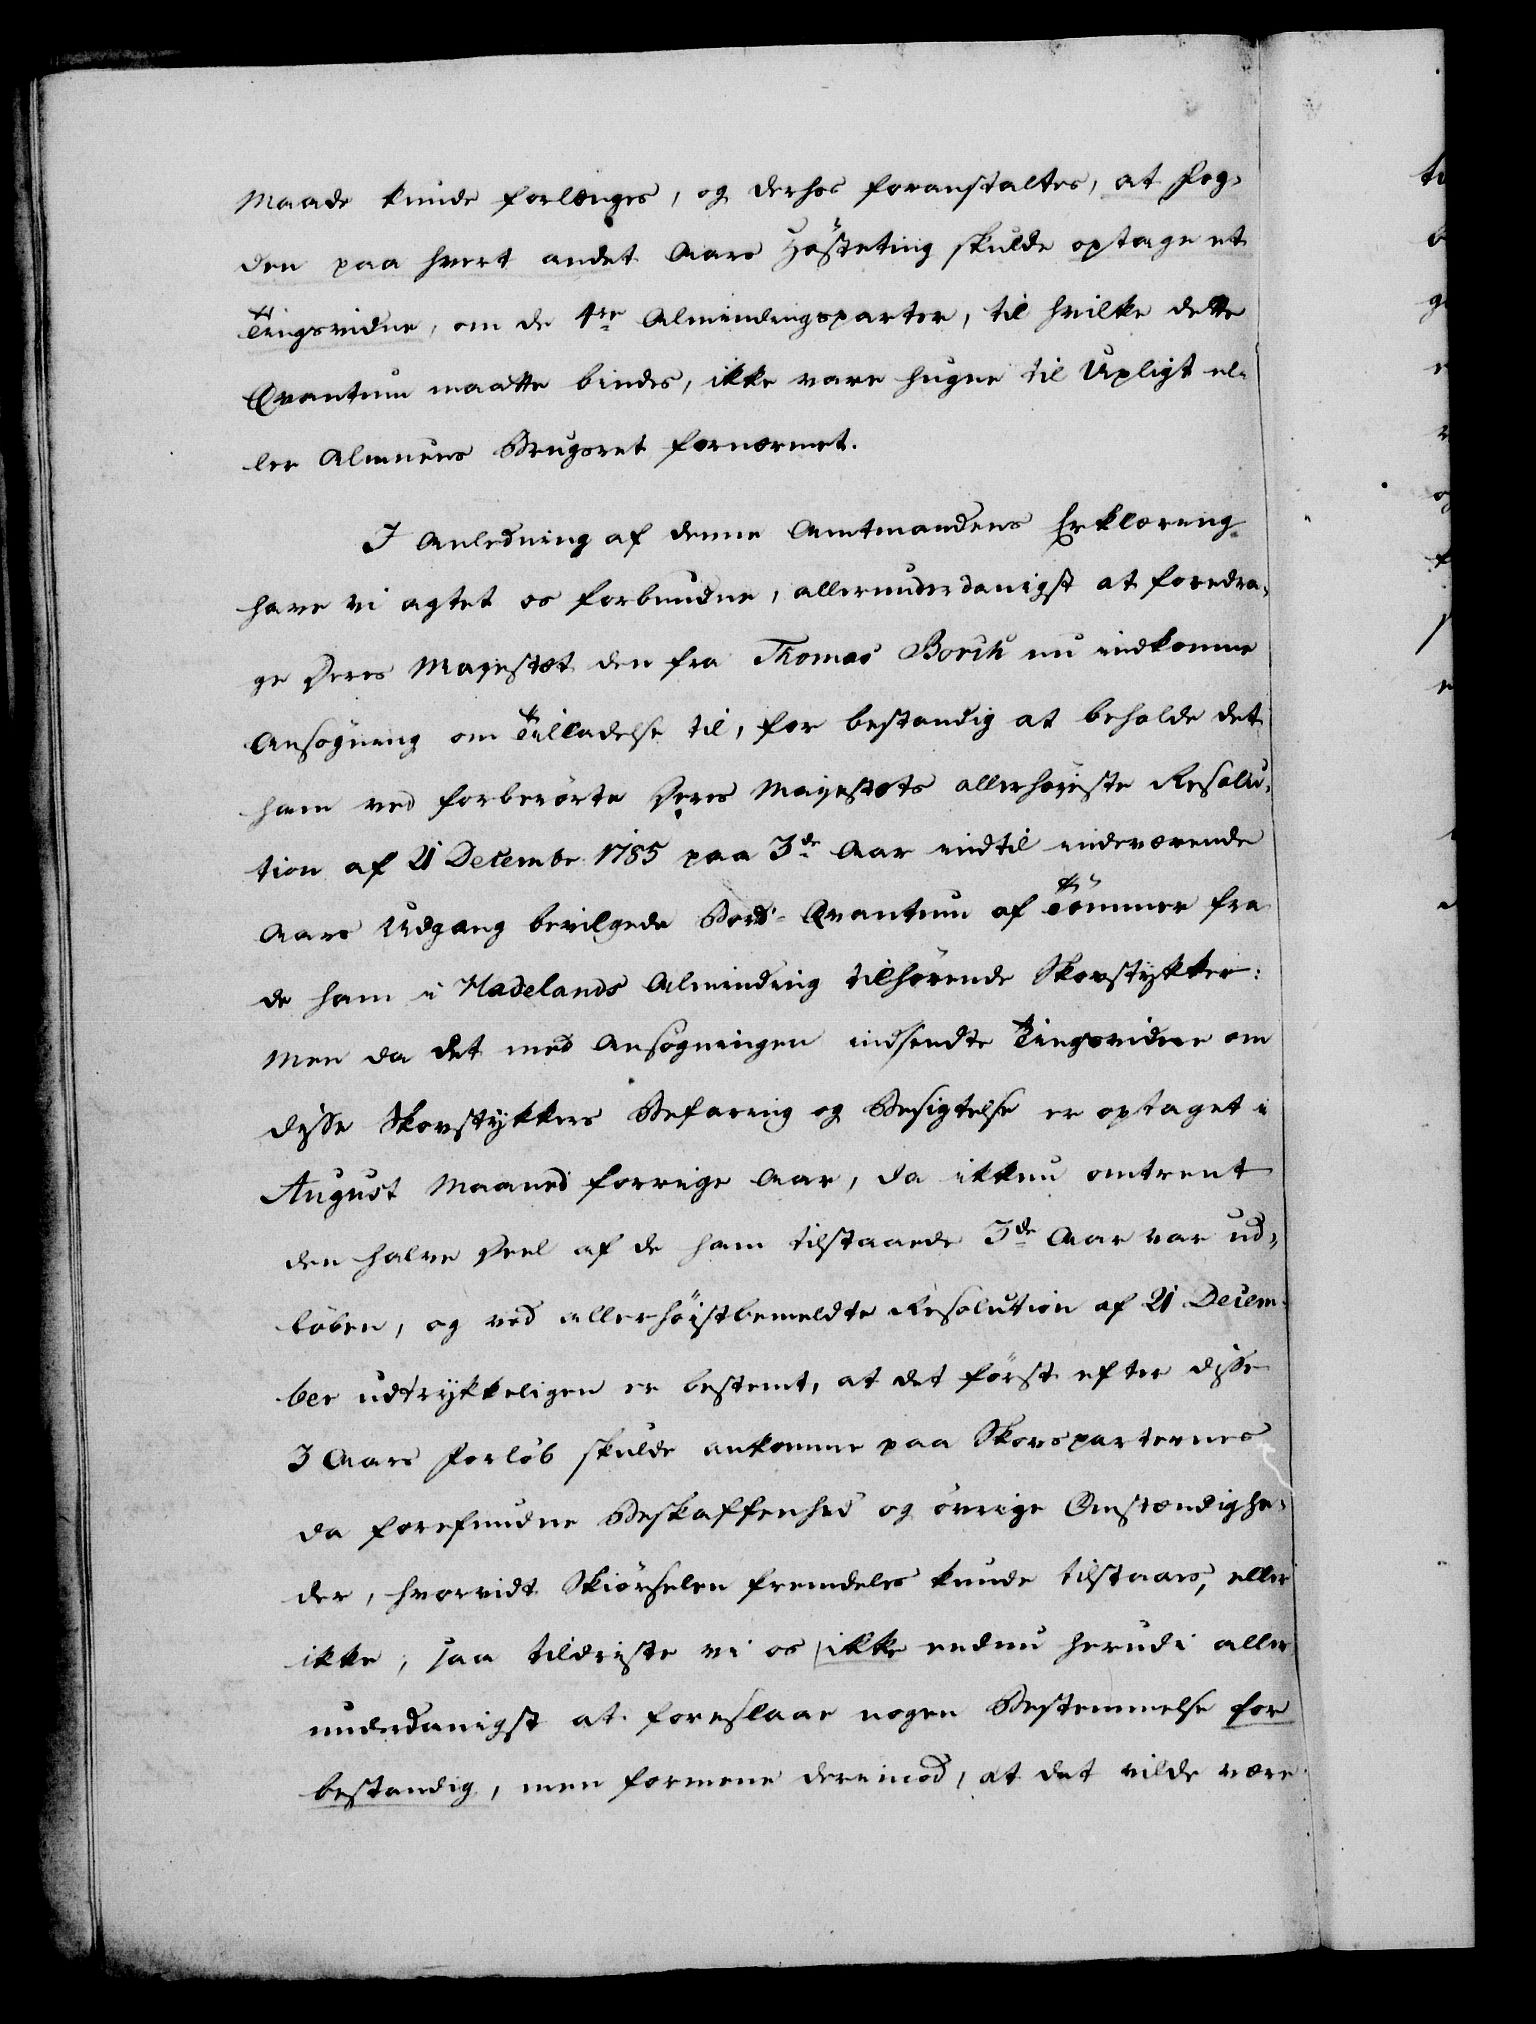 Maade kunde forlænges, og derhos foranstaltes, at Fog-
den paa hvert andet Aars Høsteting skulde optage et
Tingsvidne, om de 4re Almindingsparter, til hvilke dette
Qvantum maatte bindes, ikke vare hugne til Upligt el-
ler Almuens Brugsret fornærmet.
I Anledning af denne Amtmandens Erklæring
have vi agtet os forbundne, allerunderdanigst at foredra-
ge Deres Majestæt den fra Thomas Borch nu indkomne
Ansøgning om Tilladelse til, for bestandig at beholde det
ham ved forberørte Deres Majestæts allerhøieste Resolu-
tion af 21 Decembr 1785 paa 3de Aar indtil indeværende
Aars Udgang bevilgede Bord-Qvantum af Tømmer fra
de ham i Hadelands Alminding tilhørende Skovstykker:
Men da det med Ansøgningen indsendte Tingsvidne om
disse Skovstykkers Befaring og Besigtelse er optaget i
August Maaned forrige Aar, da ikkun omtrent
den halve Deel af de ham tilstaaede 3de Aar var ud-
løben, og ved allerhøistbemeldte Resolution af 21 Decem-
ber udtrykkeligen er bestemt, at det først efter disse
3 Aars Forløb skulde ankomme paa Skovparternes
da forefundne Beskaffenhed og øvrige Omstændighe-
der, hvorvidt Skiørselen fremdeles kunde tilstaaes, eller
ikke, saa tildriste vi os ikke endnu herudi aller
underdanigst at foreslaae nogen Bestemmelse for
bestandig, men formene derimod, at det vilde være